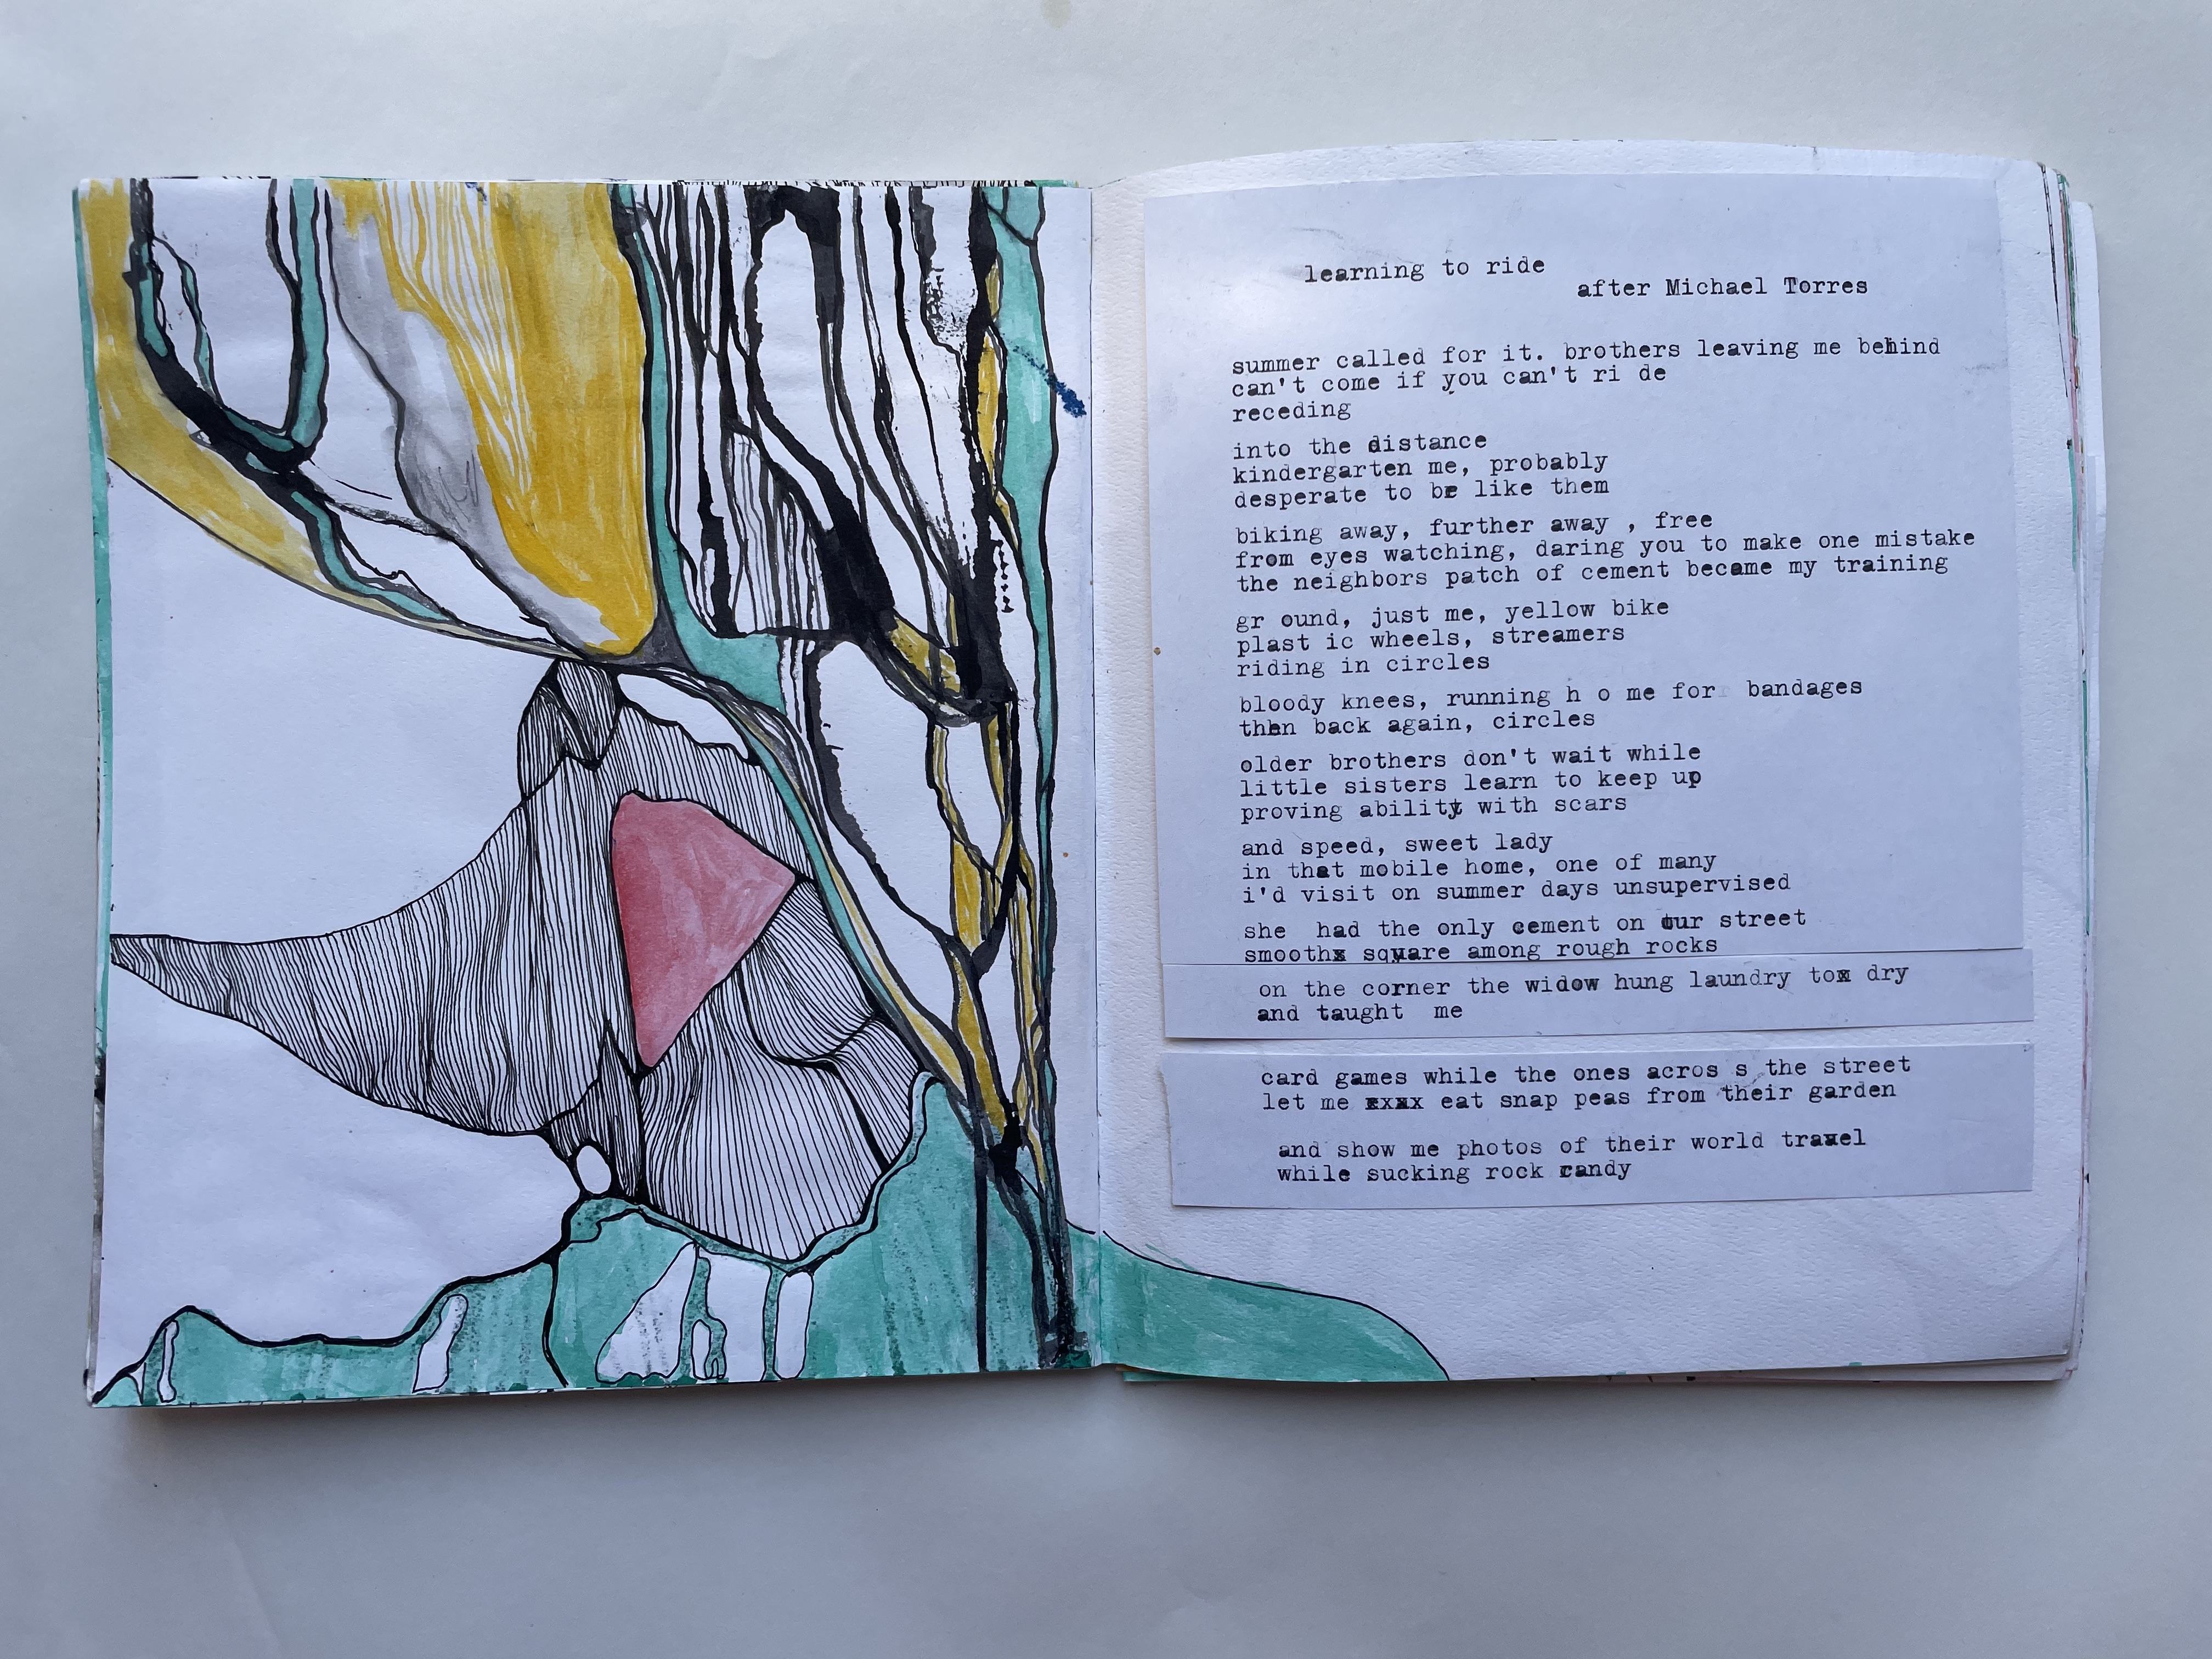 learning to ride
after Michael Torres
summer called for it. brothers leaving me behind
can't come if you can't ri de
receding
into the distance
kindergarten me, probably
desperate to be like them
biking away, further away , free
from eyes watching, daring you to make one mistake
the neighbors patch of cement became my training
gr ound, just me, yellow bike
plast ic wheels, streamers
riding in circles
bloody knees, running h o me for bandages
then back again, circles
older brothers don't wait while
little sisters learn to keep up
proving ability with scars
and speed, sweet lady
in that mobile home, one of many
i'd visit on summer days unsupervised
she had the only cement on our street
smoothx square among rough rocks
on the corner the widow hung laundry tox dry
and taught me
card games while the ones acros s the street
let me xxxx eat snap peas from their garden
and show me photos of their world travel
while sucking rock candy